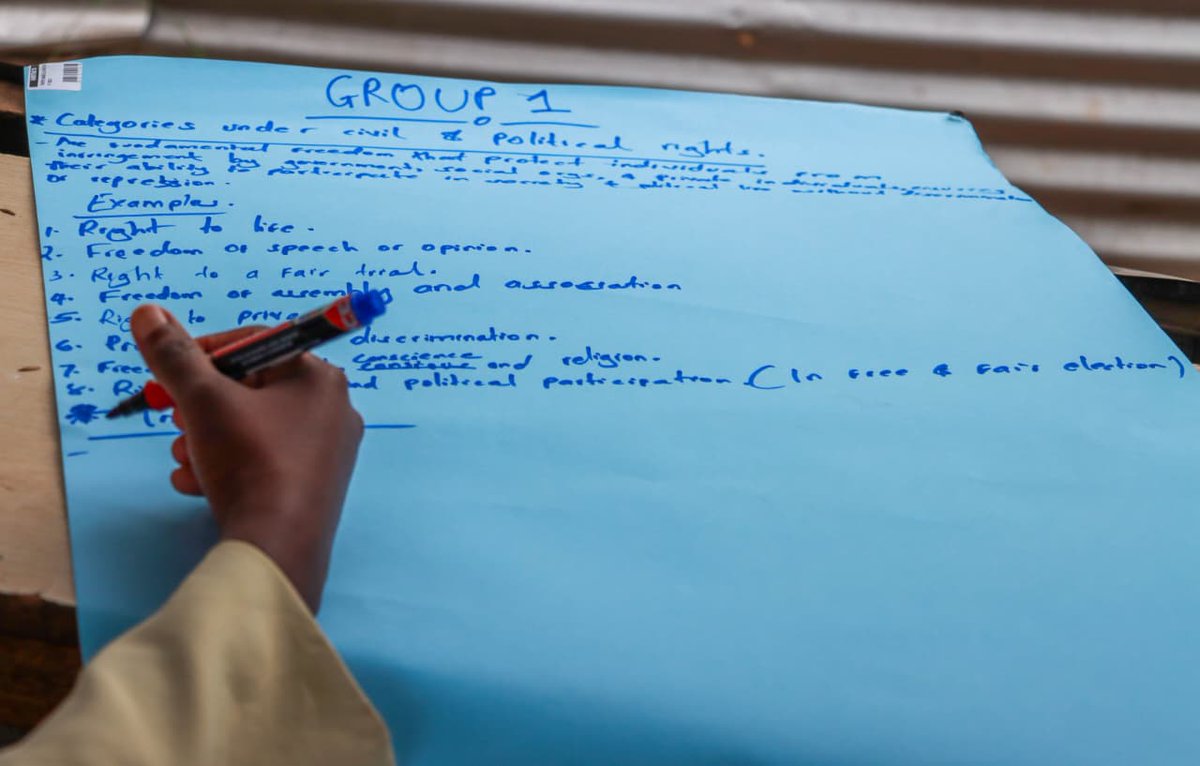 GROUP 1
* Categories under civil & Political rights.
- Are fundamental freedom that protect individuals from
infringement by governments, social orgs, & private individuals,
their ability to participate in society & political life without
or repression.
Examples.
1. Right to life.
2. Freedom of speech or opinion.
3. Right to a Fair trial.
4. Freedom of assembly and association
5. to
6. discrimination.
7. conscience and religion.
8. political participation (In free & fair election)